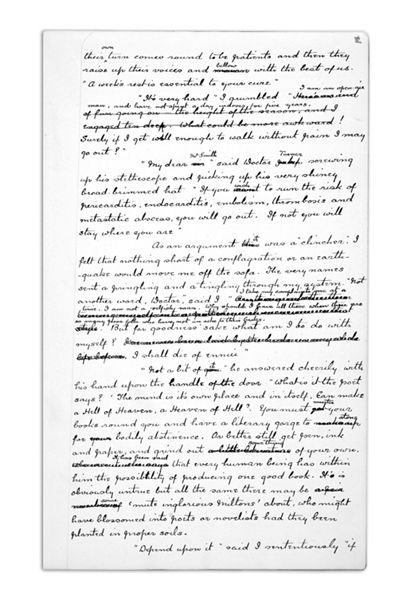 2
own
their turn comes round to be patients and then they
raise up their voices and bellow with the best of us.
"A week's rest is essential to your cure."
I am an open air
"It's very hard" I grumbled "
man, and have not spent a day indoors for five years.
of fun going on – the height of the season, and I
engaged ten deep. What could be more awkward!
Surely if I get well enough to walk without pain I may
go out?"
Mr Smith Turner
"My dear sir" said Doctor screwing
up his stethoscope and picking up his very shiney
broad-brimmed hat. "If you want to run the risk of
pericarditis, endocarditis, embolism, thrombosis and
metastatic abscess, you will go out. If not you will
stay where you are"
As an argument this was a "clincher". I
felt that nothing short of a conflagration or an earth-
-quake would move me off the sofa. The very names
sent a pringling and a tingling through my system. "Not
another word, Doctor," said I "
But for goodness' sake what am I to do with
myself?
I shall die of ennui"
"Not a bit of it" he answered cheerily with
his hand upon the handle of the door "What is it the poet
says? 'The mind is its own place and in itself, Can make
a Hell of Heaven, a Heaven of Hell'. You must your
books round you and have a literary gorge to atone
for your bodily abstinence. Or better still get pen, ink
something
and paper, and grind out a little literature of your own.
It has been said
that every human being has within
him the possibility of producing one good book. It is
obviously untrue but all the same there may be
some
'mute inglorious Miltons' about, who might
have blossomed into poets or novelists had they been
planted in proper soils.
"Depend upon it" said I sententiously "if